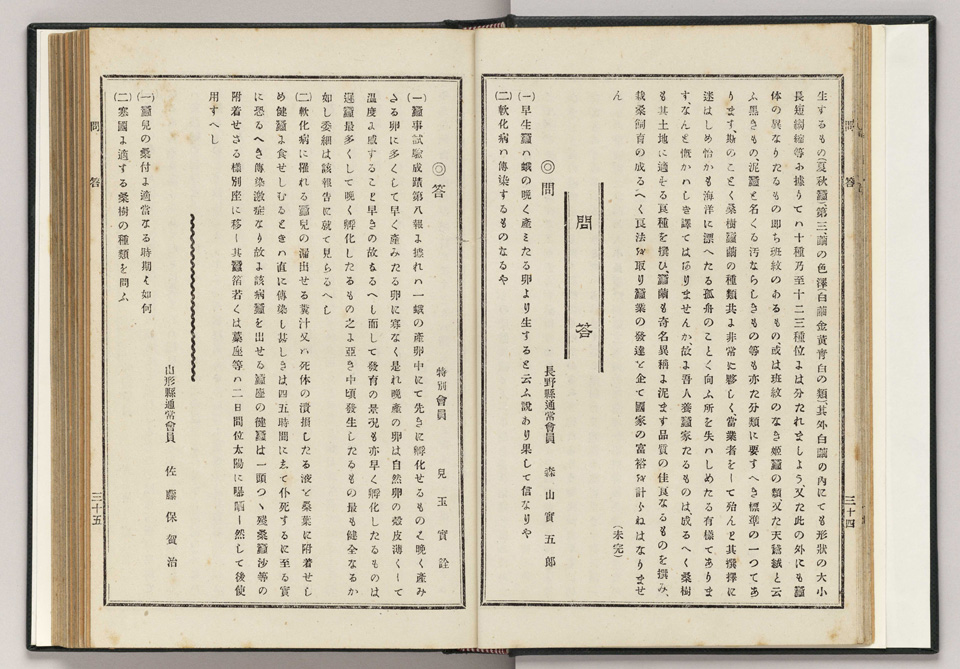 問答
三十四
生するもの(夏秋蠶)第三繭の色澤(白繭金黃青白の類)其外白繭の內にても形狀の大小
長短縐縮等お據りてハ十種乃至十二三種位よは分たれましよう、又た此の外にも蠶
体の異なりたるもの即ち班紋のあるもの或は班紋のなき姬蠶の類、又た天鵞絨と云
ふ黑きもの、泥蠶と名くる汚ならしきもの等も亦た分類に要すへき標準の一つてあ
ります、斯のことく桑樹蠶繭の種類其よ非常に夥しく當業者をして殆んと其撰擇に
迷はしめ恰かも海洋に漂へたる孤舟のことく向ふ所を失ハしめたる有樣てありま
す、なんと慨かハしき譯てはありませんか、故よ吾人養蠶家たるものは、成るへく桑樹
も其土地に適せる良種を撰ひ蠶繭も奇名異稱よ泥ます品質の佳良なるものを撰み、
栽桑飼育の成るへく良法を取り蠶業の發達を企て國家の富裕を計らねはなりませ
ん
(未完)
問答
◎問
長野縣通常會員 森山寅五郎
(一)早生蠶ハ蛾の晚く產みたる卵より生すると云ふ說あり果して信なりや
(二)軟化病ハ傳染するものなるや
◎答
特別會員 兒玉實詮
(一)蠶事試驗成蹟第八報よ據れハ一蛾の產卵中にて先きに孵化せるものは晚く產み
たる卵に多くして早く產みたる卵に寡なく是れ晚產の卵は自然卵の殼皮薄くして
溫度よ感すること早きの故なるへし而して發育の景况も亦早く孵化したるものは
遲蠶最多くして晚く孵化したるもの之よ亞き中頃發生したるもの最も健全なるか
如し委細は該報告に就て見らるへし
(二)軟化病に罹れる蠶兒の漏出せる糞汁又ハ死体の潰損したる液を桑葉に附着せし
め健蠶よ食せしむるときハ直に傳染し甚しきは四五時間にして仆死するに至る實
に恐るへき傳染激症なり故よ該病蠶を出せる蠶座の健蠶は一頭つゝ殘桑蠶沙等の
附着せさる樣別座に移し其蠶箔若くは藁座等ハ二日間位太陽に曝晒し然して後使
用すへし
山形縣通常會員 佐藤保賀治
(一)蠶兒の桑付よ適當なる時期は如何
(二)寒國よ適する桑樹の種類を問ふ
問答
三十五